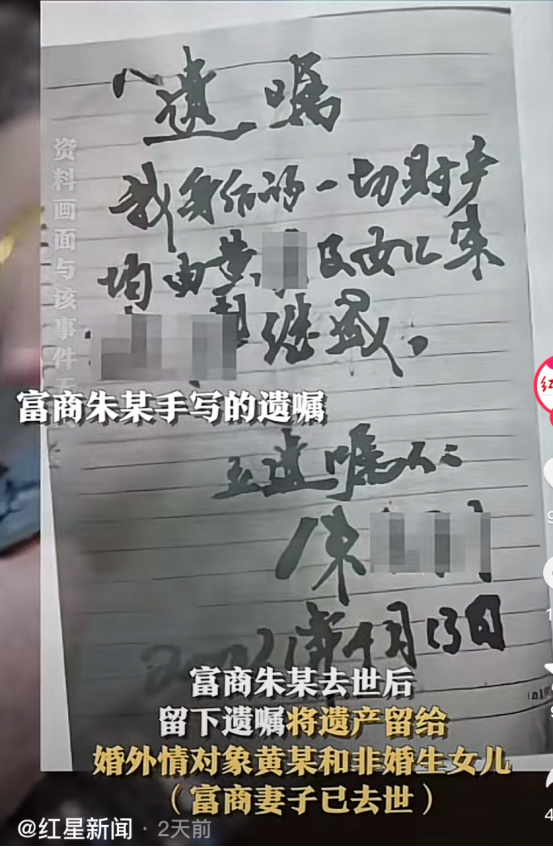 遗嘱
我身后的一切财产
均由黄 及女儿朱
继承。
立遗嘱人:
朱
2021年 月13日
资料画面与该事件无
富商朱某手写的遗嘱
富商朱某去世后
留下遗嘱将遗产留给
婚外情对象黄某和非婚生女儿
（富商妻子已去世）
@红星新闻 · 2天前
红